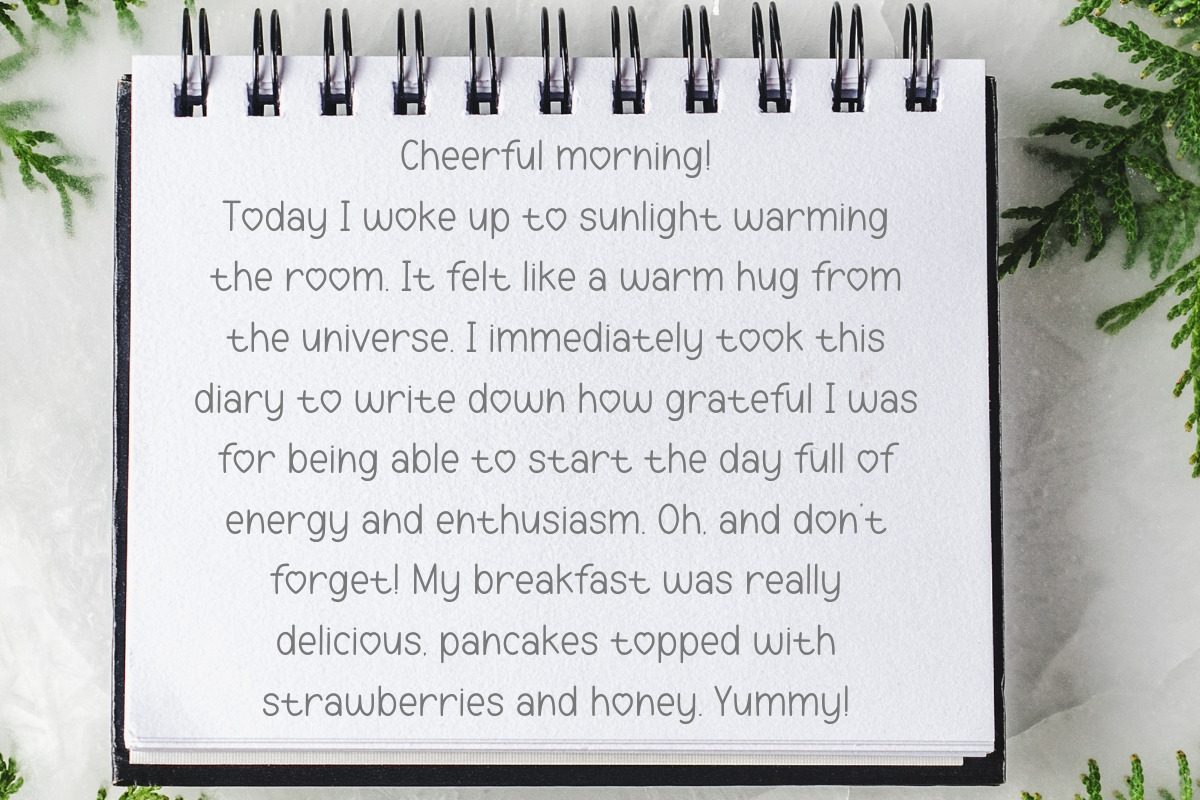 Cheerful morning!
Today I woke up to sunlight warming
the room. It felt like a warm hug from
the universe. I immediately took this
diary to write down how grateful I was
for being able to start the day full of
energy and enthusiasm. Oh, and don't
forget! My breakfast was really
delicious, pancakes topped with
strawberries and honey. Yummy!